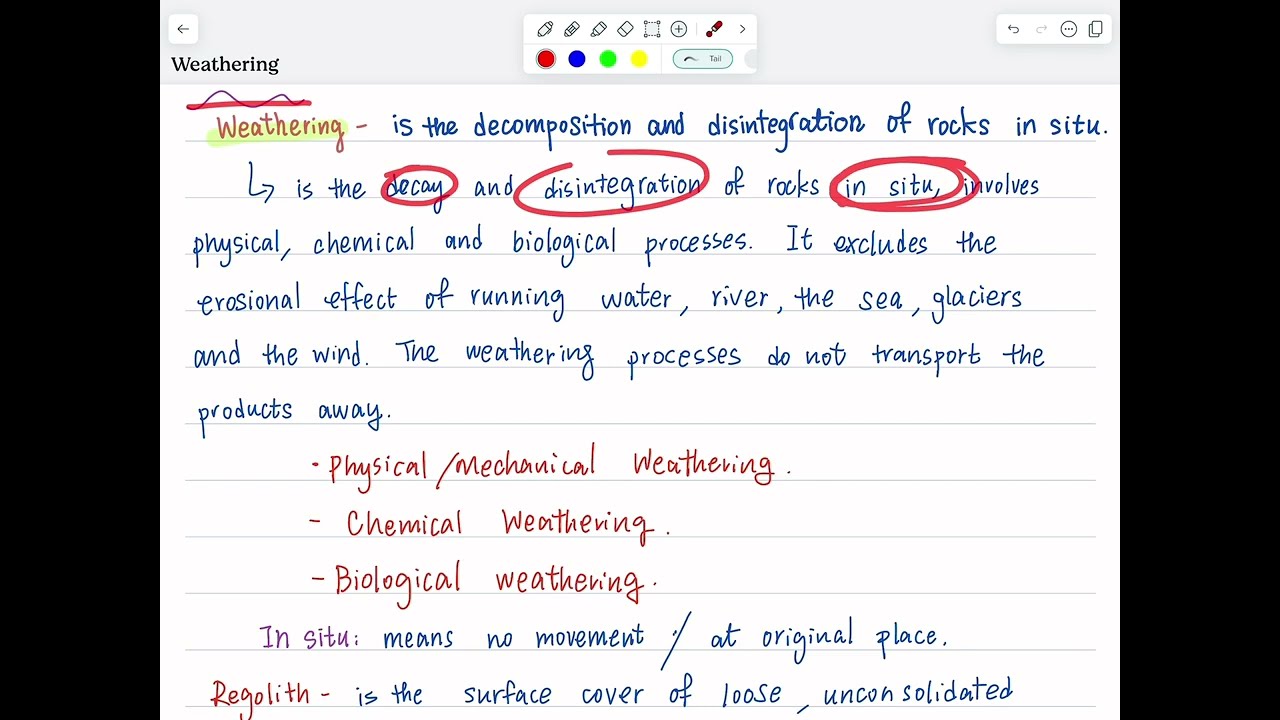 Tail
Weathering
Weathering - is the decomposition and disintegration of rocks in situ.
↳ is the decay and disintegration of rocks in situ, involves
physical, chemical and biological processes. It excludes the
erosional effect of running water, river, the sea, glaciers
and the wind. The weathering processes do not transport the
products away.
· Physical/Mechanical Weathering.
- Chemical Weathering.
- Biological weathering.
In situ: means no movement / at original place.
Regolith - is the surface cover of loose, unconsolidated